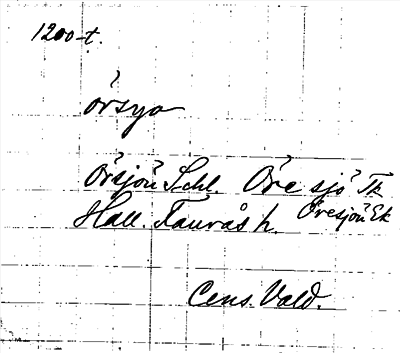 1200-t.
örsyo
Örsjön Schl. Öre sjö Tk
Hall. Faurås h. Öresjön Ek
Cens. Vald.